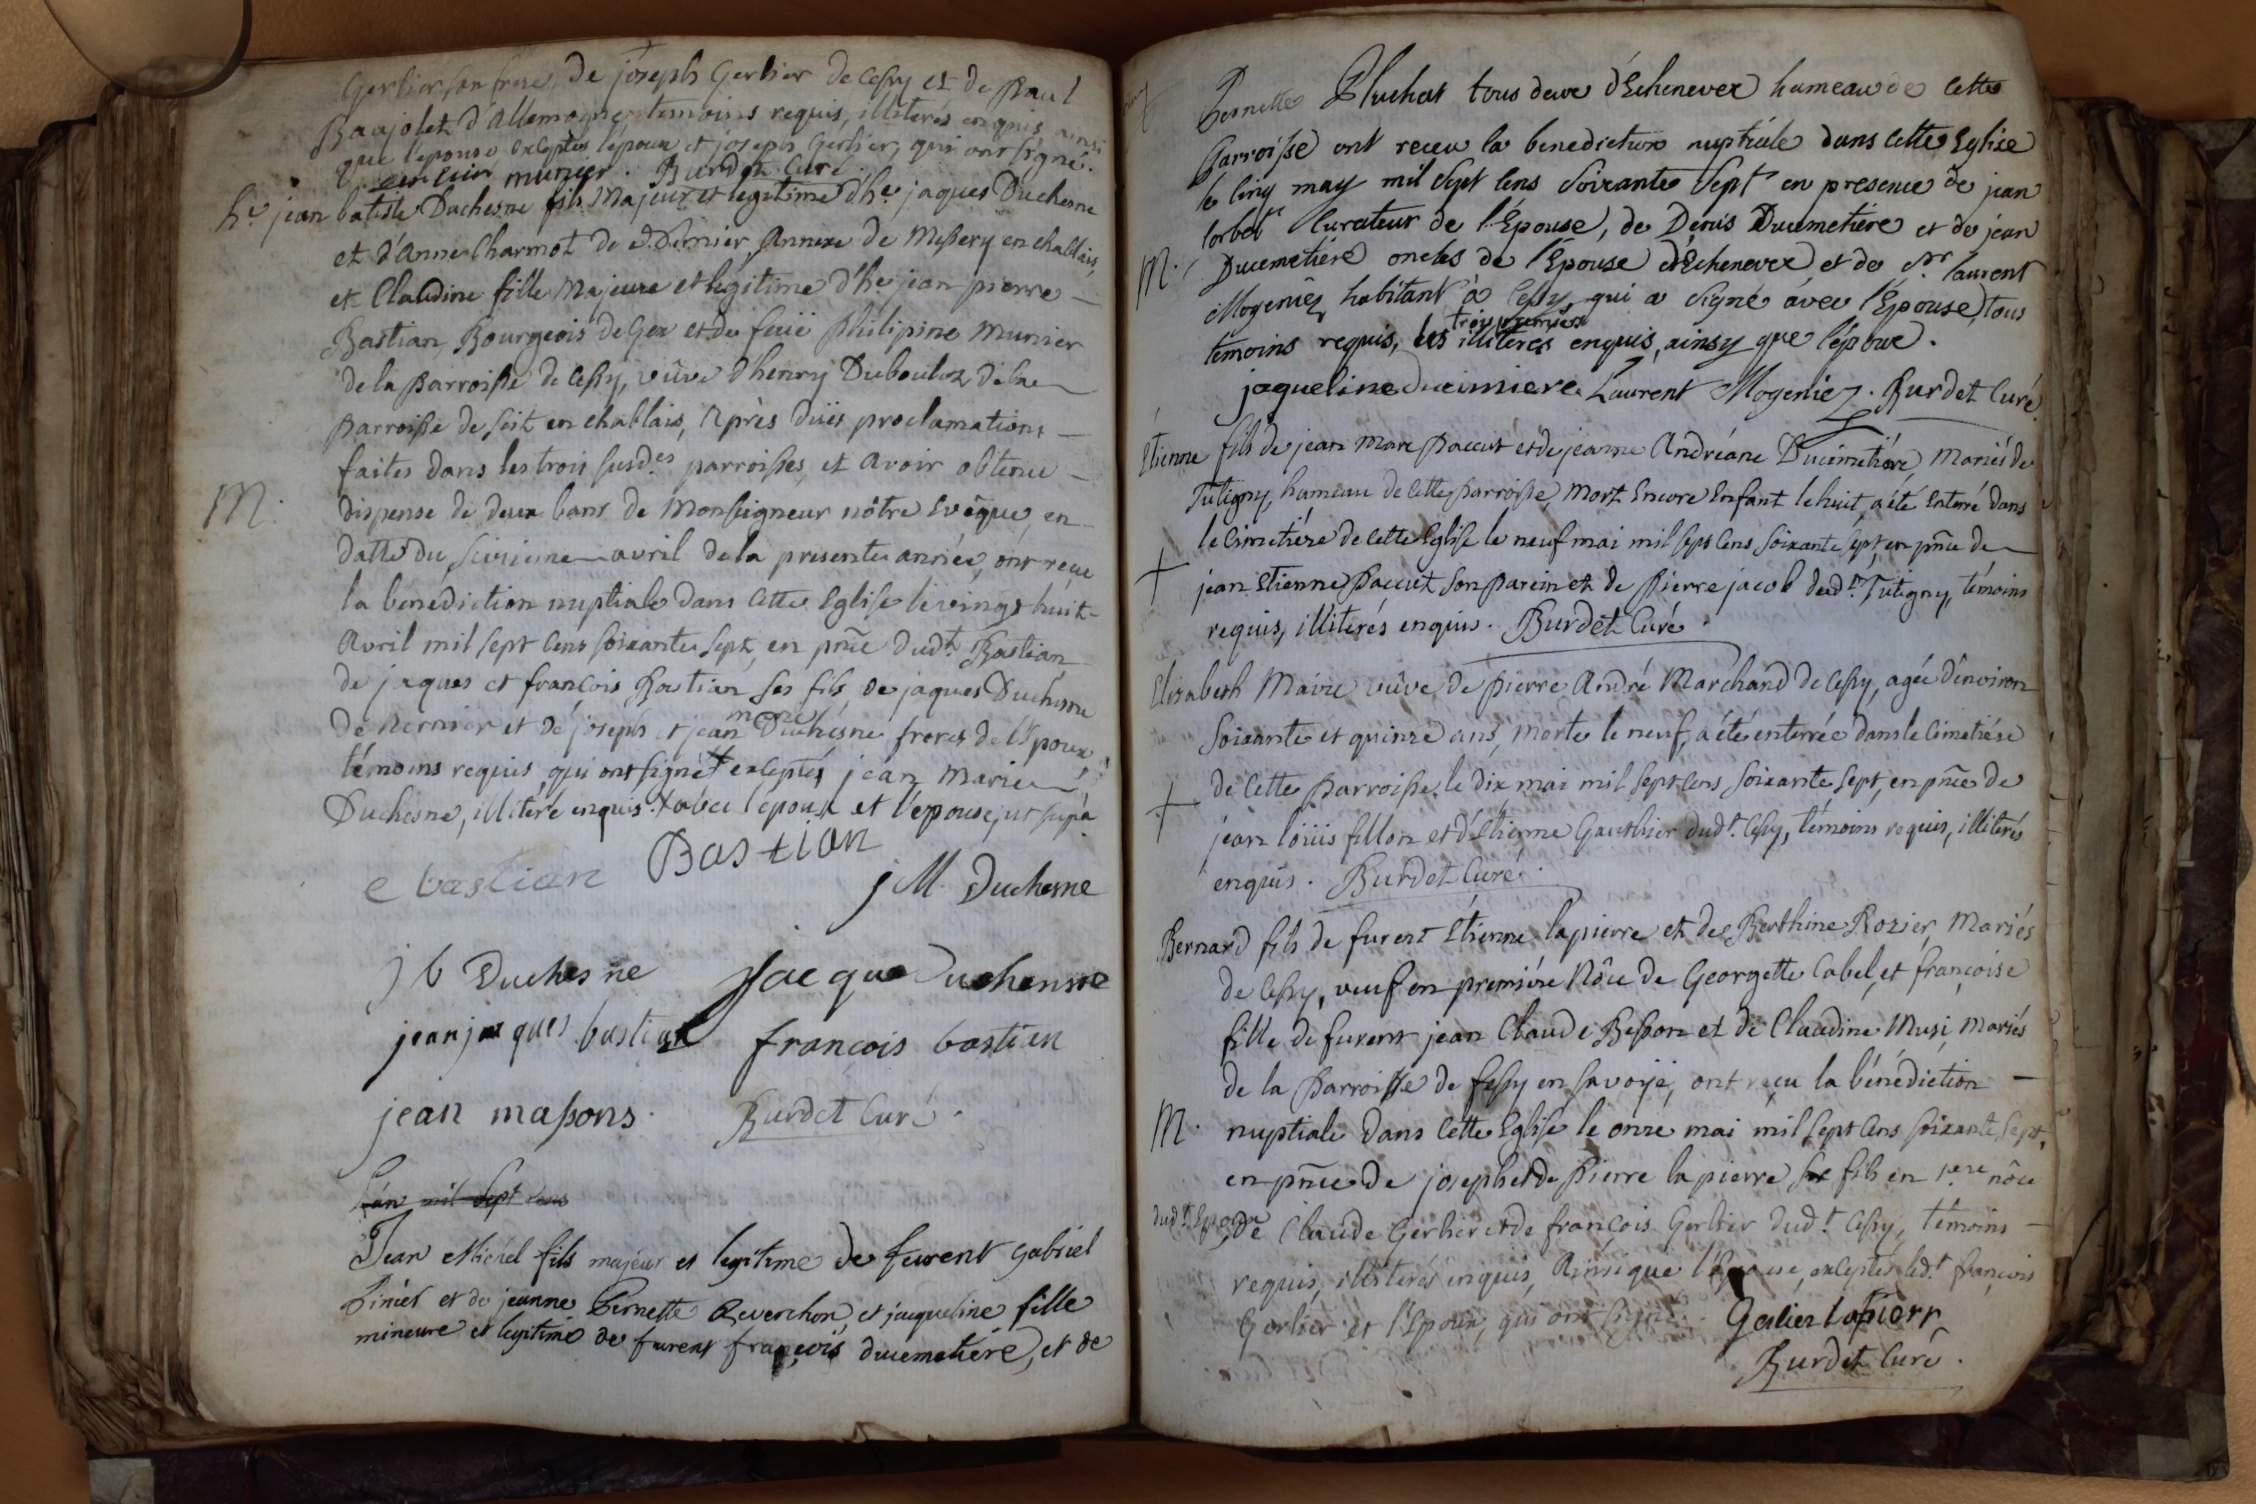 Gerlier son frere, de joseph Gerlier de Cessy et de Paul
Baujolet d'Allemogne, temoins requis, illiterés enquis ainsi
que l'epouse exceptés l'époux et joseph Gerlier, qui ont signé.
munier. Burdet Curé
h.e jean batiste Duchesne fils Majeur et legitime d'h.e jaques Duchesne
et d'Anne Charmot de Annexe de Messery en chablais,
et Claudine fille Majeure et legitime d'h.e jean pierre
Bastian, Bourgeois de Gex et de fuë Philipine Munier
de la Parroisse de Cessy, vûve d'henry Dubouloz de la
parroisse de en chablais, Après duës proclamations
faites dans les trois susd.es parroisses, et avoir obtenu
M. dispense de deux bans de Monseigneur nôtre Evêque, en
datte du avril de la presente année, ont reçu
la benediction nuptiale dans cette Eglise le vingt huit
Avril mil sept cens soixante sept, en pñce dud.t Bastian
de jaques et françois Bastian ses fils de jaques Duchesne
de Nernier et de joseph et jean marie Duchesne freres de l'Epoux,
témoins requis qui ont signé + exceptés jean Marie
Duchesne, illiteré enquis. + avec l'epoux et l'epouse, ut supà
c bastian Bastian
j M. Duchesne
j b Duchesne jacque Duchensne
jean jaques bastian françois bastian
jean massons. Burdet Curé.
L'an mil sept cens
Jean Michel fils majeur et legitime de furent Gabriel
Piniet et de jeanne Pernette Reverchon, et jaqueline fille
mineure et legitime de furent françois ducemetiére, et de
Pernette Pluchat tous deux d'Echenevex hameau de cette
Parroisse ont receu la benediction nuptiale dans cette Eglise
le cinq may mil sept cens soixante sept en presence de jean
Corbet curateur de l'Epouse, de Denis Ducemetiére et de jean
M. Ducemetiére oncles de l'Epouse d'Echenevex et de S.r laurent
Mogeniez habitant à Cessy, qui a signé avec l'Epouse, tous
temoins requis, les trois premiers illiteres enquis, ainsy que l'époux.
jaqueline ducimiere. Laurent Mogeniez. Burdet Curé
Etienne fils de jean Marc Paccut et de jeanne Andréane Ducimetiére, Mariés de
Tutigny, hameau de cette parroisse, Mort Encore Enfant le huit, a été Enterré dans
le Cimetiére de cette Eglise le neuf mai mil sept cens soixante sept, en pñce de
+ jean Etienne Paccut son Parein et de Pierre jacob dud.t Tutigny, témoins
requis, illiterés enquis. Burdet Curé.
Elizabeth Maire vûve de Pierre André Marchand de Cessy, agée d'environ
soixante et quinze ans, Morte le neuf, a été enterrée dans le Cimetiére
de cette Parroisse, le dix mai mil sept cens soixante sept, en pñce de
+ jean loüis fillon et d'Etienne Gauthier dud.t Cessy, témoins requis, illiterés
enquis. Burdet Curé.
Bernard fils de furent Etienne lapierre et de Berthine Rozier, Mariés
de Cessy, veuf en premiére Nôce de Georgette Cabel, et françoise
fille de furent jean Claude Besson et de Claudine Musi, Mariés
de la Parroisse de fessy en savoÿe, ont reçu la bénédiction
M. nuptiale dans cette Eglise le onze mai mil sept cens soixante sept,
en pñce de joseph et de Pierre lapierre fils en 1.ere nôce
dud.t Epoux, de Claude Gerlier et de françois Gerlier dud.t Cessy, témoins
requis, illiterés enquis, Ainsi que l'Epouse, exceptés led.t françois
Gerlier et l'Epoux, qui ont signé. Gerlier lapierr
Burdet Curé.